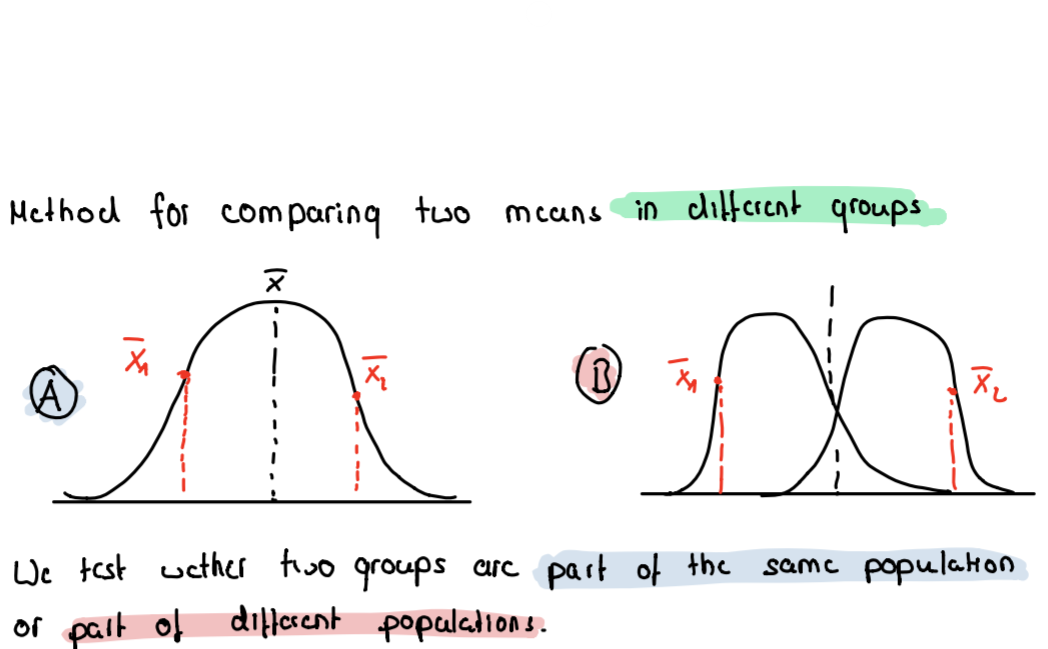 Method for comparing two means in different groups
x̄
x̄₁
x̄₂
A
B
x̄₁
x̄₂
We test wether two groups are part of the same population
or part of different populations.